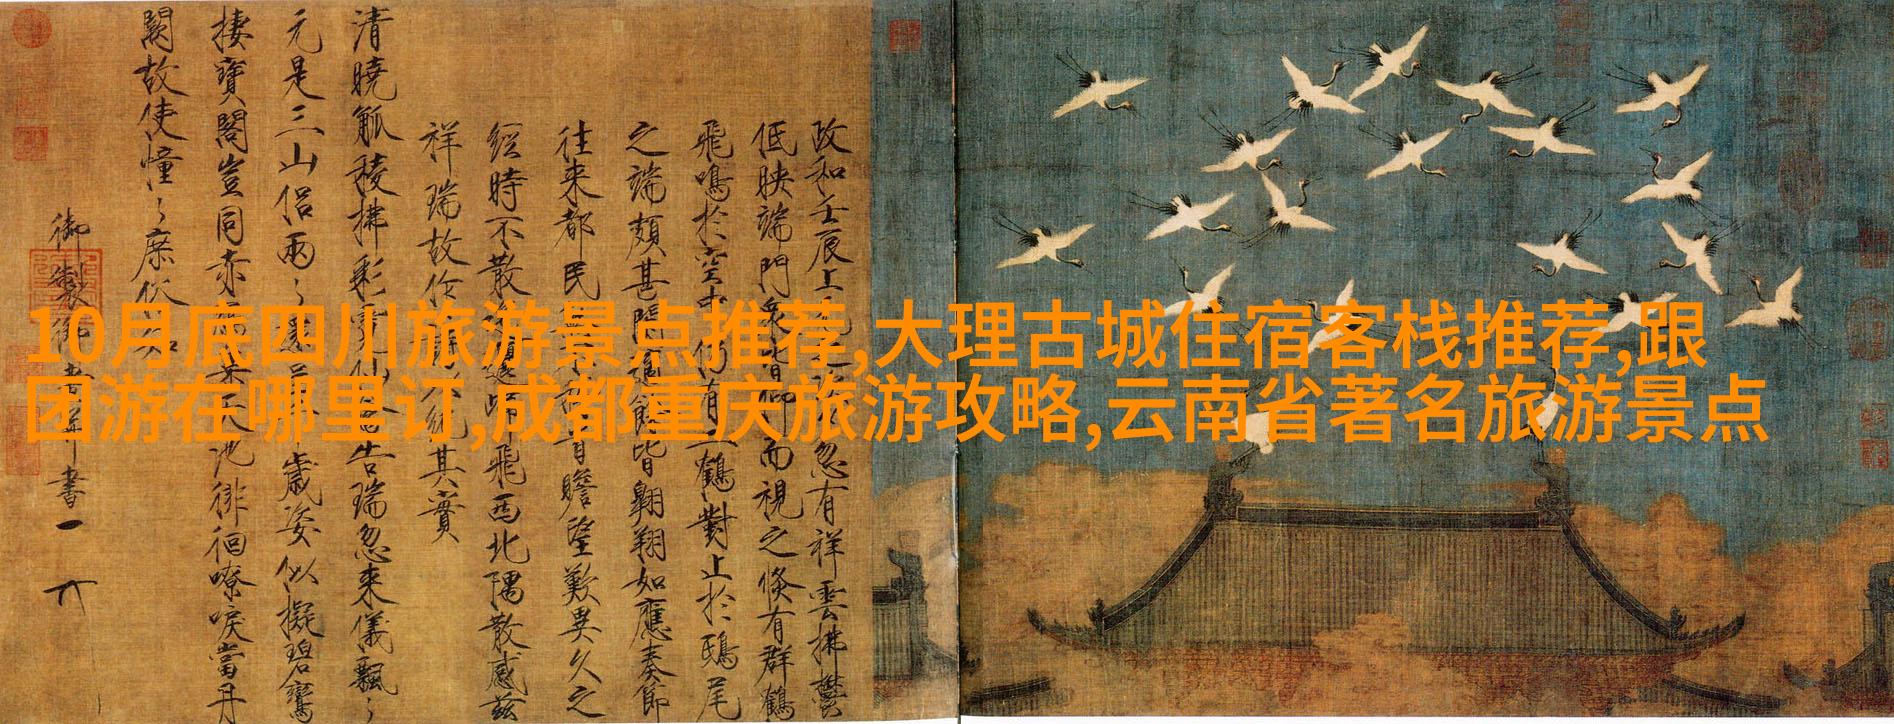 10月底四川旅游景点推荐,大理古城住宿客栈推荐,跟
团游在哪里订,成都重庆旅游攻略,云南省著名旅游景点
政和壬辰上元之次夕忽有祥雲拂鬱
低映端門衆皆仰而視之倐有群鶴
飛鳴於空中仍有二鶴對止於鴟尾
之端頗甚閒適餘皆翱翔如應奏節
往來都民無不稽首瞻望歎異久之
經時不散迤邐歸飛西北隅散感茲
祥瑞故作詩以紀其實
清曉觚稜拂彩霓仙禽告瑞忽來儀飄〻
元是三山侶兩〻還呈千歲姿似擬碧鸞
棲寶閣豈同赤鴈集天池徘徊嘹唳當丹
闕故使憧〻庶俗知
御製御書并書